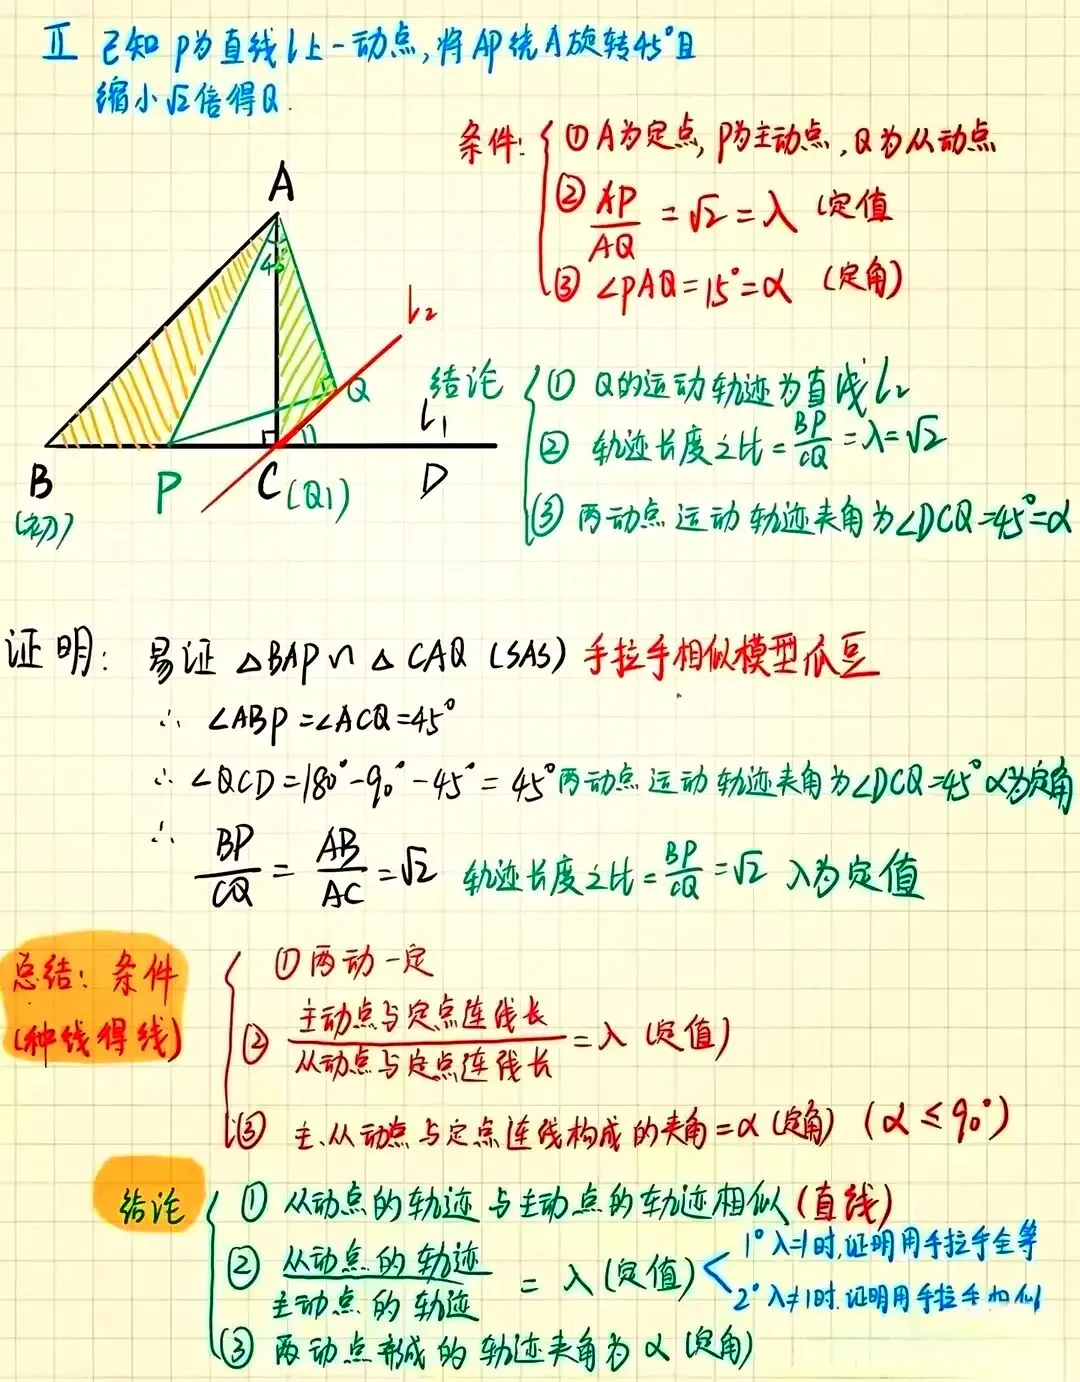 Ⅱ 已知P为直线l上一动点,将AP绕A旋转45°且
缩小√2倍得Q.
条件:
①A为定点,P为主动点,Q为从动点
②AP/AQ=√2=λ(定值
③∠PAQ=15°=α (定角)
A
45°
l₂
Q
l₁
B
(初)
P
C(Q1)
D
结论
① Q的运动轨迹为直线l₂
② 轨迹长度之比=BP/CQ=λ=√2
③ 两动点运动轨迹夹角为∠DCQ=45°=α
证明: 易证 △BAP∽△CAQ (SAS) 手拉手相似模型瓜豆
∴ ∠ABP=∠ACQ=45°
∴ ∠QCD=180°-90°-45°=45° 两动点运动轨迹夹角为∠DCQ=45° α为定角
∴ BP/CQ=AB/AC=√2 轨迹长度之比=BP/CQ=√2 λ为定值
总结: 条件
(种线得线)
①两动一定
②主动点与定点连线长/从动点与定点连线长=λ(定值)
③ 主.从动点与定点连线构成的夹角=α(定角) (α≤90°)
结论
① 从动点的轨迹与主动点的轨迹相似(直线)
② 从动点的轨迹/主动点的轨迹=λ(定值)
1° λ=1时,证明用手拉手全等
2° λ≠1时.证明用手拉手相似
③ 两动点形成的轨迹夹角为α(定角)